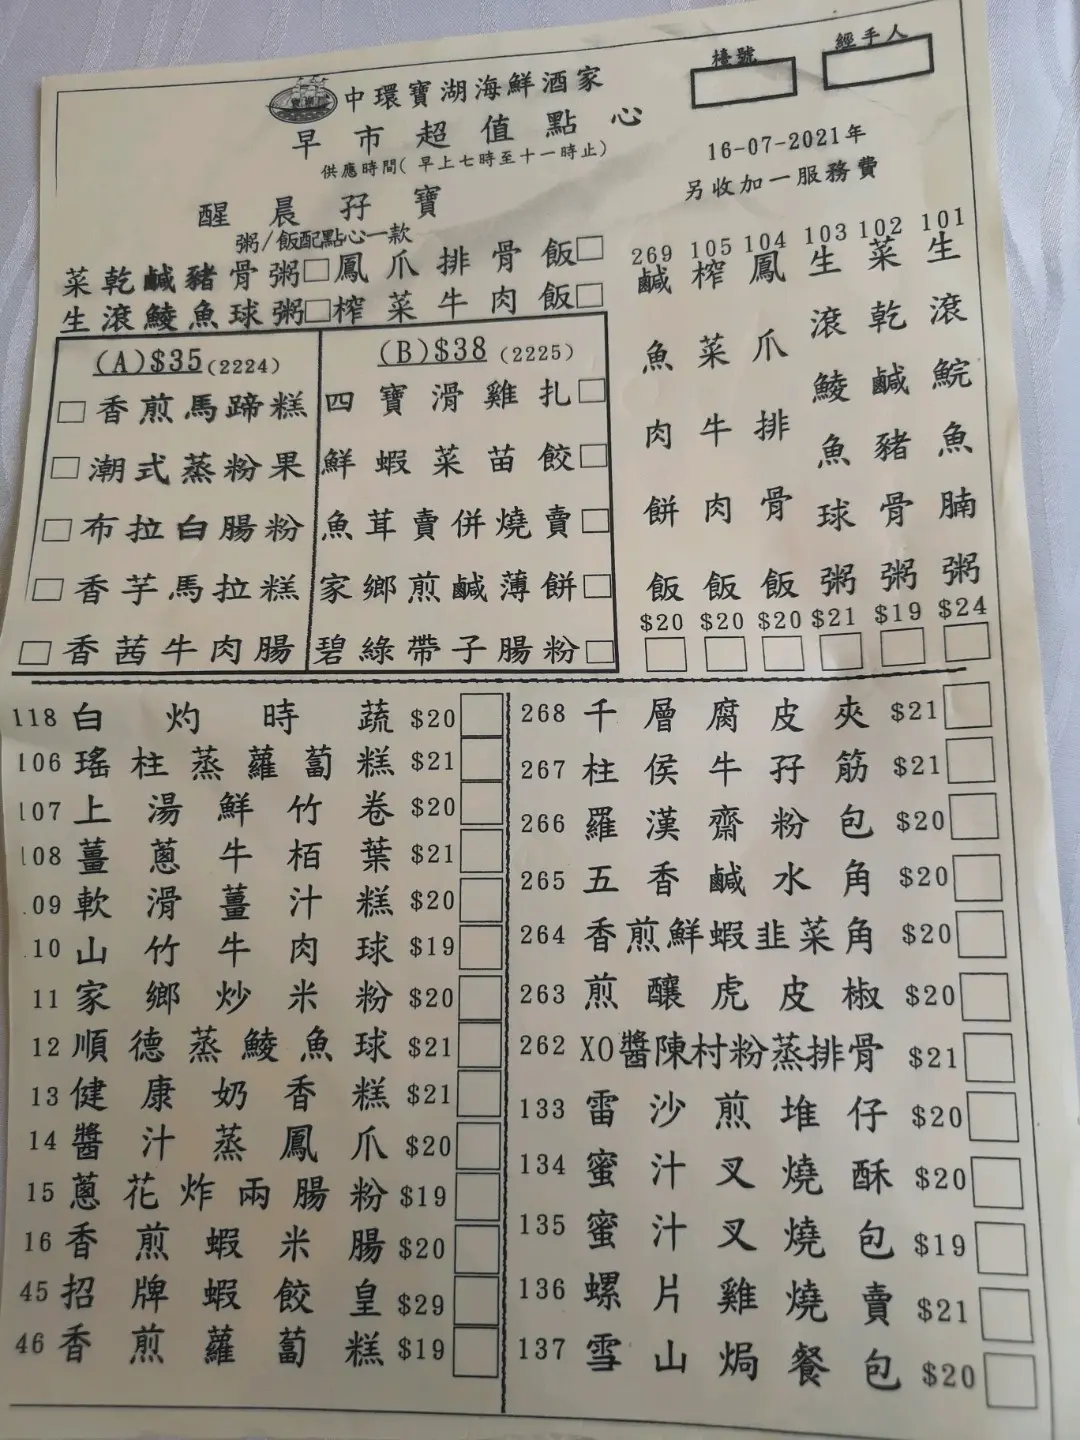 檯號
經手人
中環寶湖海鮮酒家
早市超值點心
供應時間(早上七時至十一時止)
16-07-2021年
另收加一服務費
醒晨孖寶
粥/飯配點心一款
菜乾鹹豬骨粥□鳳爪排骨飯□
生滾鯪魚球粥□榨菜牛肉飯□
(A)$35(2224)
□香煎馬蹄糕
□潮式蒸粉果
□布拉白腸粉
□香芋馬拉糕
□香茜牛肉腸
(B)$38(2225)
四寶滑雞扎□
鮮蝦菜苗餃□
魚茸賣併燒賣□
家鄉煎鹹薄餅□
碧綠帶子腸粉□
101生滾鯇魚腩粥$24
102菜乾鹹豬骨粥$19
103生滾鯪魚球粥$21
104鳳爪排骨飯$20
105榨菜牛肉飯$20
269鹹魚肉餅飯$20
118白灼時蔬$20
106瑤柱蒸蘿蔔糕$21
107上湯鮮竹卷$20
108薑蔥牛栢葉$21
09軟滑薑汁糕$20
10山竹牛肉球$19
11家鄉炒米粉$20
12順德蒸鯪魚球$21
13健康奶香糕$21
14醬汁蒸鳳爪$20
15蔥花炸兩腸粉$19
16香煎蝦米腸$20
45招牌蝦餃皇$29
46香煎蘿蔔糕$19
268千層腐皮夾$21
267柱侯牛孖筋$21
266羅漢齋粉包$20
265五香鹹水角$20
264香煎鮮蝦韭菜角$20
263煎釀虎皮椒$20
262XO醬陳村粉蒸排骨$21
133雷沙煎堆仔$20
134蜜汁叉燒酥$20
135蜜汁叉燒包$19
136螺片雞燒賣$21
137雪山焗餐包$20